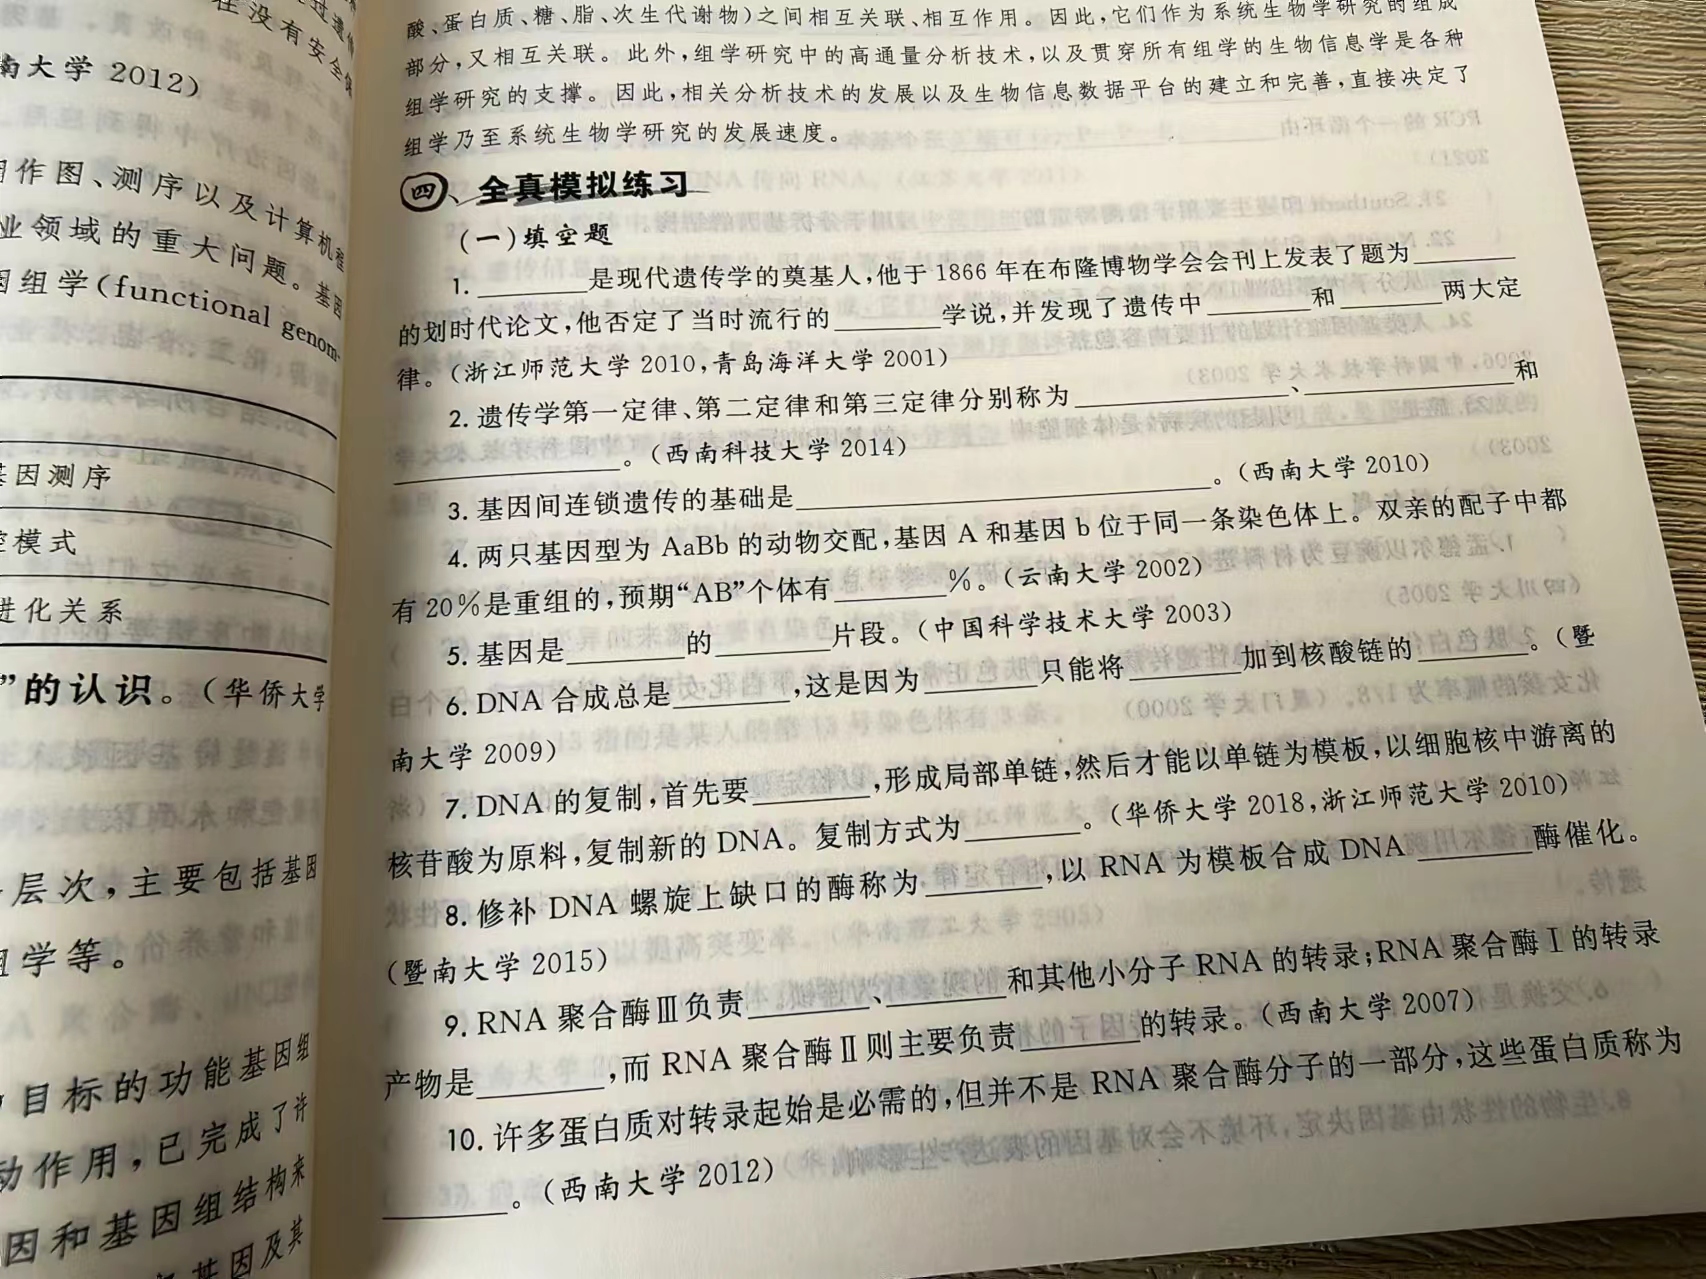 过遗传
在没有安全保
南大学 2012)
作图、测序以及计算机程
业领域的重大问题。基因
因组学(functional genom-
基因测序
控模式
进化关系
”的认识。(华侨大学
层次,主要包括基因
组学等。
目标的功能基因组
动作用,已完成了许
因和基因组结构来
基因及其
酸、蛋白质、糖、脂、次生代谢物)之间相互关联、相互作用。因此,它们作为系统生物学研究的组成
部分,又相互关联。此外,组学研究中的高通量分析技术,以及贯穿所有组学的生物信息学是各种
组学研究的支撑。因此,相关分析技术的发展以及生物信息数据平台的建立和完善,直接决定了
组学乃至系统生物学研究的发展速度。
四、全真模拟练习
(一)填空题
1. ________是现代遗传学的奠基人,他于 1866 年在布隆博物学会会刊上发表了题为________
的划时代论文,他否定了当时流行的________学说,并发现了遗传中________和________两大定
律。(浙江师范大学 2010,青岛海洋大学 2001)
2. 遗传学第一定律、第二定律和第三定律分别称为________、________和
________。(西南科技大学 2014)
3. 基因间连锁遗传的基础是________。(西南大学 2010)
4. 两只基因型为 AaBb 的动物交配,基因 A 和基因 b 位于同一条染色体上。双亲的配子中都
有 20%是重组的,预期“AB”个体有________%。(云南大学 2002)
5. 基因是________的________片段。(中国科学技术大学 2003)
6. DNA 合成总是________,这是因为________只能将________加到核酸链的________。(暨
南大学 2009)
7. DNA 的复制,首先要________,形成局部单链,然后才能以单链为模板,以细胞核中游离的
核苷酸为原料,复制新的 DNA。复制方式为________。(华侨大学 2018,浙江师范大学 2010)
8. 修补 DNA 螺旋上缺口的酶称为________,以 RNA 为模板合成 DNA ________酶催化。
(暨南大学 2015)
9. RNA 聚合酶Ⅲ负责________、________和其他小分子 RNA 的转录;RNA 聚合酶Ⅰ的转录
产物是________,而 RNA 聚合酶Ⅱ则主要负责________的转录。(西南大学 2007)
10. 许多蛋白质对转录起始是必需的,但并不是 RNA 聚合酶分子的一部分,这些蛋白质称为
________。(西南大学 2012)